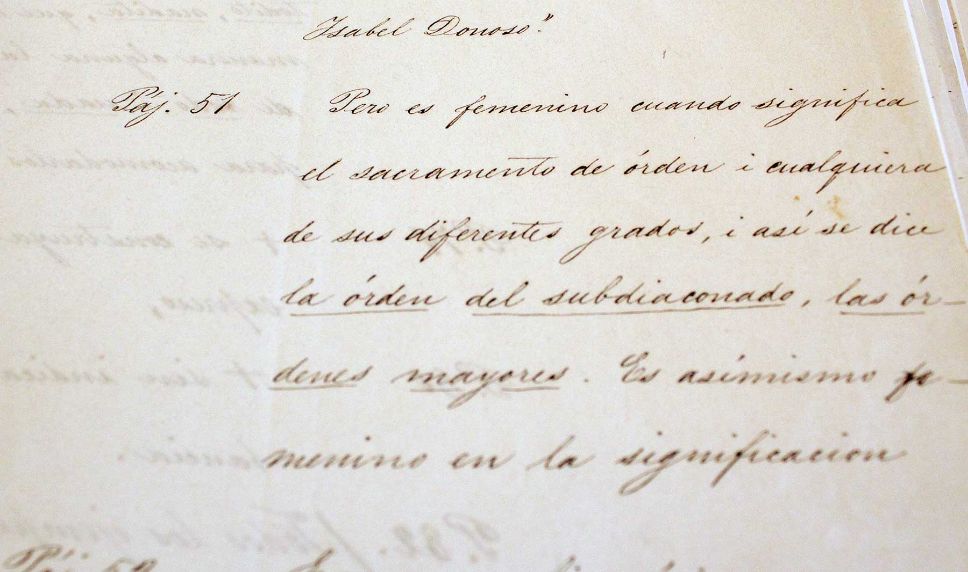 Isabel Donoso".
Páj. 51 Pero es femenino cuando significa
el sacramento de órden i cualquiera
de sus diferentes grados, i así se dice
la órden del subdiaconado, las ór-
denes mayores. Es asímismo fe-
menino en la significacion
Páj. 52